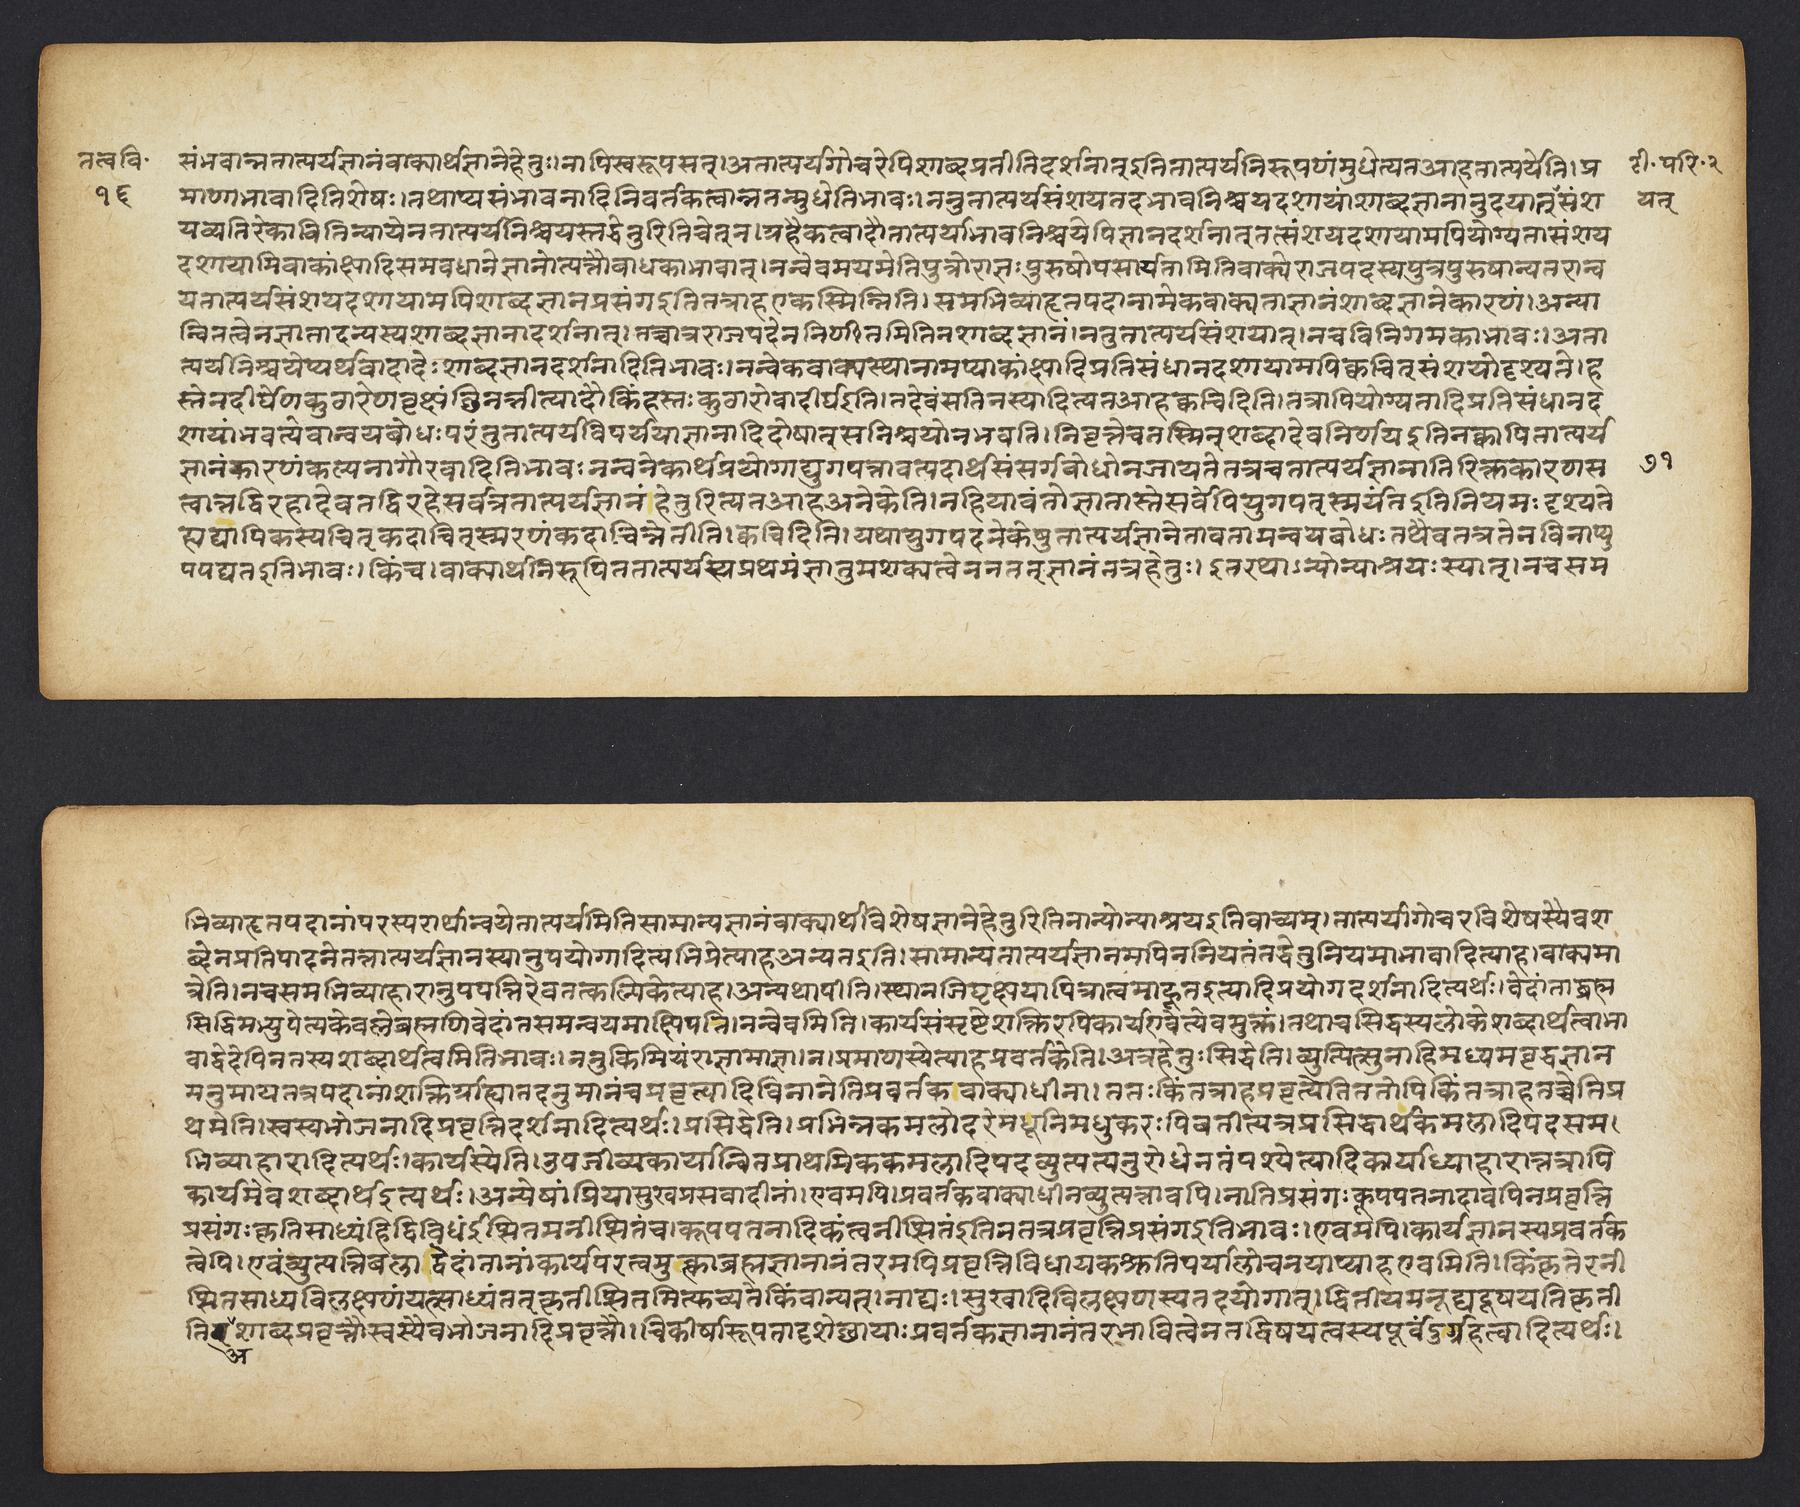 तत्व वि॰
१६
द्वी॰ परि॰ २
यत्
७१
संभवान्नतात्पर्यज्ञानंवाक्यार्थज्ञानेहेतुः।नापिस्वरूपसत्।अतात्पर्यगोचरेपिशाब्दप्रतीतिदर्शनात्इतितात्पर्यनिरूपणंमुधेत्यतआहतात्पर्येति।प्र
माणाभावादितिशेषः।तथाप्यसंभावनादिनिवर्तकत्वान्नतन्मुधेतिभावः।ननुतात्पर्यसंशयतदभावनिश्चयदशायांशाब्दज्ञानानुदयात्संश
यव्यतिरेकावितिन्यायेनतात्पर्यनिश्चयस्तद्धेतुरितिचेत्न।ग्रहैकत्वादौतात्पर्याभावनिश्चयेपिज्ञानदर्शनात्तत्संशयदशायामपियोग्यतासंशय
दशायामिवाकांक्षादिसमवधानेज्ञानोत्पत्तौबाधकाभावात्।नन्वेवमयमेतिपुत्रोराज्ञःपुरुषोपसार्यतामितिवाक्येराजपदस्यपुत्रपुरुषान्यतरान्व
यतात्पर्यसंशयदशायामपिशाब्दज्ञानप्रसंगइतितत्राहएकस्मिन्निति।समभिव्याहृतपदानामेकवाक्यताज्ञानंशाब्दज्ञानेकारणं।अन्या
न्वितत्वेनज्ञातादन्यस्यशाब्दज्ञानादर्शनात्।तच्चात्रराजपदेननिर्णीतमितिनशाब्दज्ञानं।नतुतात्पर्यसंशयात्।नचविनिगमकाभावः।अता
त्पर्यनिश्चयेप्यर्थवादादेःशाब्दज्ञानदर्शनादितिभावः।नन्वेकवाक्यस्थानामप्याकांक्षादिप्रतिसंधानदशायामपिक्वचित्संशयोदृश्यते।ह
स्तेनदीर्घेणकुठारेणवृक्षंछिनत्तीत्यादौकिंहस्तःकुठारोवादीर्घइति।तदेवंसतिनस्यादित्यतआहक्वचिदिति।तत्रापियोग्यतादिप्रतिसंधानद
शायांभवत्येवान्वयबोधःपरंतुतात्पर्यविपर्ययाज्ञानादिदोषात्सनिश्चयोनभवति।निवृत्तेचतस्मिन्शब्दादेवनिर्णयइतिनक्वापितात्पर्य
ज्ञानंकारणंकल्पनागौरवादितिभावःनन्वनेकार्थप्रयोगाद्युगपत्तावत्पदार्थसंसर्गबोधोनजायतेतत्रचतात्पर्यज्ञानातिरिक्तकारणस
त्वात्तद्विरहादेवतद्विरहेसर्वत्रतात्पर्यज्ञानंहेतुरित्यतआहअनेकेति।नहियावंतोज्ञातास्तेसर्वेपियुगपत्स्मर्यंतइतिनियमःदृश्यते
ह्यद्यापिकस्यचित्कदाचित्स्मरणंकदाचिन्नेतीति।क्वचिदिति।यथायुगपदनेकेषुतात्पर्यज्ञानेतावतामन्वयबोधःतथैवतत्रतेनविनाप्यु
पपद्यतइतिभावः।किंच।वाक्यार्थनिरूपिततात्पर्यस्यप्रथमंज्ञातुमशक्यत्वेननतत्ज्ञानंतत्रहेतुः।इतरथाऽन्योन्याश्रयःस्यात्।नचसम
भिव्याहृतपदानांपरस्परार्थान्वयेतात्पर्यमितिसामान्यज्ञानंवाक्यार्थविशेषज्ञानेहेतुरितिनान्योन्याश्रयइतिवाच्यम्।तात्पर्यगोचरविशेषस्यैवश
ब्देनप्रतिपादनेतत्तात्पर्यज्ञानस्यानुपयोगादित्यभिप्रेत्याहअन्यतइति।सामान्यतात्पर्यज्ञानमपिननियतंतद्धेतुनियमाभावादित्याह।वाक्यमा
त्रेति।नचसमभिव्याहारानुपपत्तिरेवतत्कल्पिकेत्याह।अन्यथापीति।स्थानजिघृक्षयापित्रात्वमाहूतइत्यादिप्रयोगदर्शनादित्यर्थः।वेदांताद्ब्रह्म
सिद्धिमभ्युपेत्यकेवलेब्रह्मणिवेदांतसमन्वयमाक्षिपति।नन्वेवमिति।कार्यसंसृष्टेशक्तिरपिकार्यएवेत्येवमुक्तं।तथाचसिद्धस्यलोकेशब्दार्थत्वाभा
वाद्वेदेपिनतस्यशब्दार्थत्वमितिभावः।ननुकिमियंराज्ञामाज्ञा।न।प्रमाणस्येत्याहप्रवर्तकेति।अत्रहेतुःसिद्धेति।व्युत्पित्सुनाहिमध्यमवृद्धज्ञान
मनुमायतत्रपदानांशक्तिर्ग्राह्यातदनुमानंचप्रवृत्त्यादिविनानेतिप्रवर्तकवाक्याधीना।ततःकिंतत्राहप्रवृत्त्येतिततोपिकिंतत्राहतच्चेतिप्र
थमेति।स्वस्यभोजनादिप्रवृत्तिदर्शनादित्यर्थः।प्रसिद्धेति।प्रभिन्नकमलोदरेमधूनिमधुकरःपिबतीत्यत्रप्रसिद्धार्थकमलादिपदसम।
भिव्याहारादित्यर्थः।कार्यस्येति।उपजीव्यकार्यान्वितप्राथमिककमलादिपदव्युत्पत्यनुरोधेनतंपश्येत्यादिकार्याध्याहारात्तत्रापि
कार्यमेवशब्दार्थइत्यर्थः।अन्येषांप्रियासुखप्रसवादीनां।एवमपि।प्रवर्तकवाक्याधीनव्युत्पत्तावपि।नातिप्रसंगःकूपपतनादावपिनप्रवृत्ति
प्रसंगःकृतिसाध्यंहिद्विविधंईप्सितमनीप्सितंच।कूपपतनादिकंत्वनीप्सितंइतिनतत्रप्रवृत्तिप्रसंगइतिभावः।एवमपि।कार्यज्ञानस्यप्रवर्तक
त्वेपि।एवंव्युत्पत्तिबलाद्वेदांतानांकार्यपरत्वमुत्क्काब्रह्मज्ञानानंतरमपिप्रवृत्तिविधायकश्रुतिपर्यालोचनयाप्याहएवमिति।किंकृतेरनी
प्सितसाध्यविलक्षणंयत्साध्यंतत्कृतीप्सितमित्युच्यतेकिंवान्यत्।नाद्यः।सुखादिविलक्षणस्यतदयोगात्।द्वितीयमनूद्यदूषयतिकृती
तिशाब्दप्रवृत्तौस्वस्यैवभोजनादिप्रवृत्तौ।चिकीर्षारूपतादृशेछायाःप्रवर्तकज्ञानानंतरभावित्वेनतद्विषयत्वस्यपूर्वंदुर्ग्रहत्वादित्यर्थः।
अ